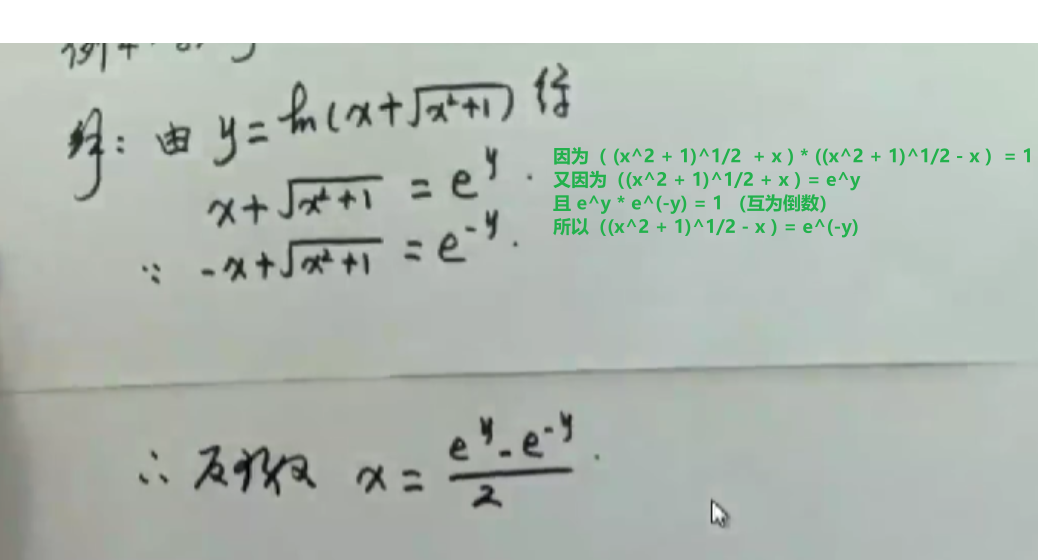 解：由 y = ln(x+√(x²+1)) 得
x+√(x²+1) = e^y .
因为（ (x^2 + 1)^1/2 + x ) * ((x^2 + 1)^1/2 - x ) = 1
又因为（(x^2 + 1)^1/2 + x ) = e^y
且 e^y * e^(-y) = 1 （互为倒数）
所以（(x^2 + 1)^1/2 - x ) = e^(-y)
∵ -x+√(x²+1) = e^-y .
∴ 反函数 x = (e^y - e^-y)/2 .